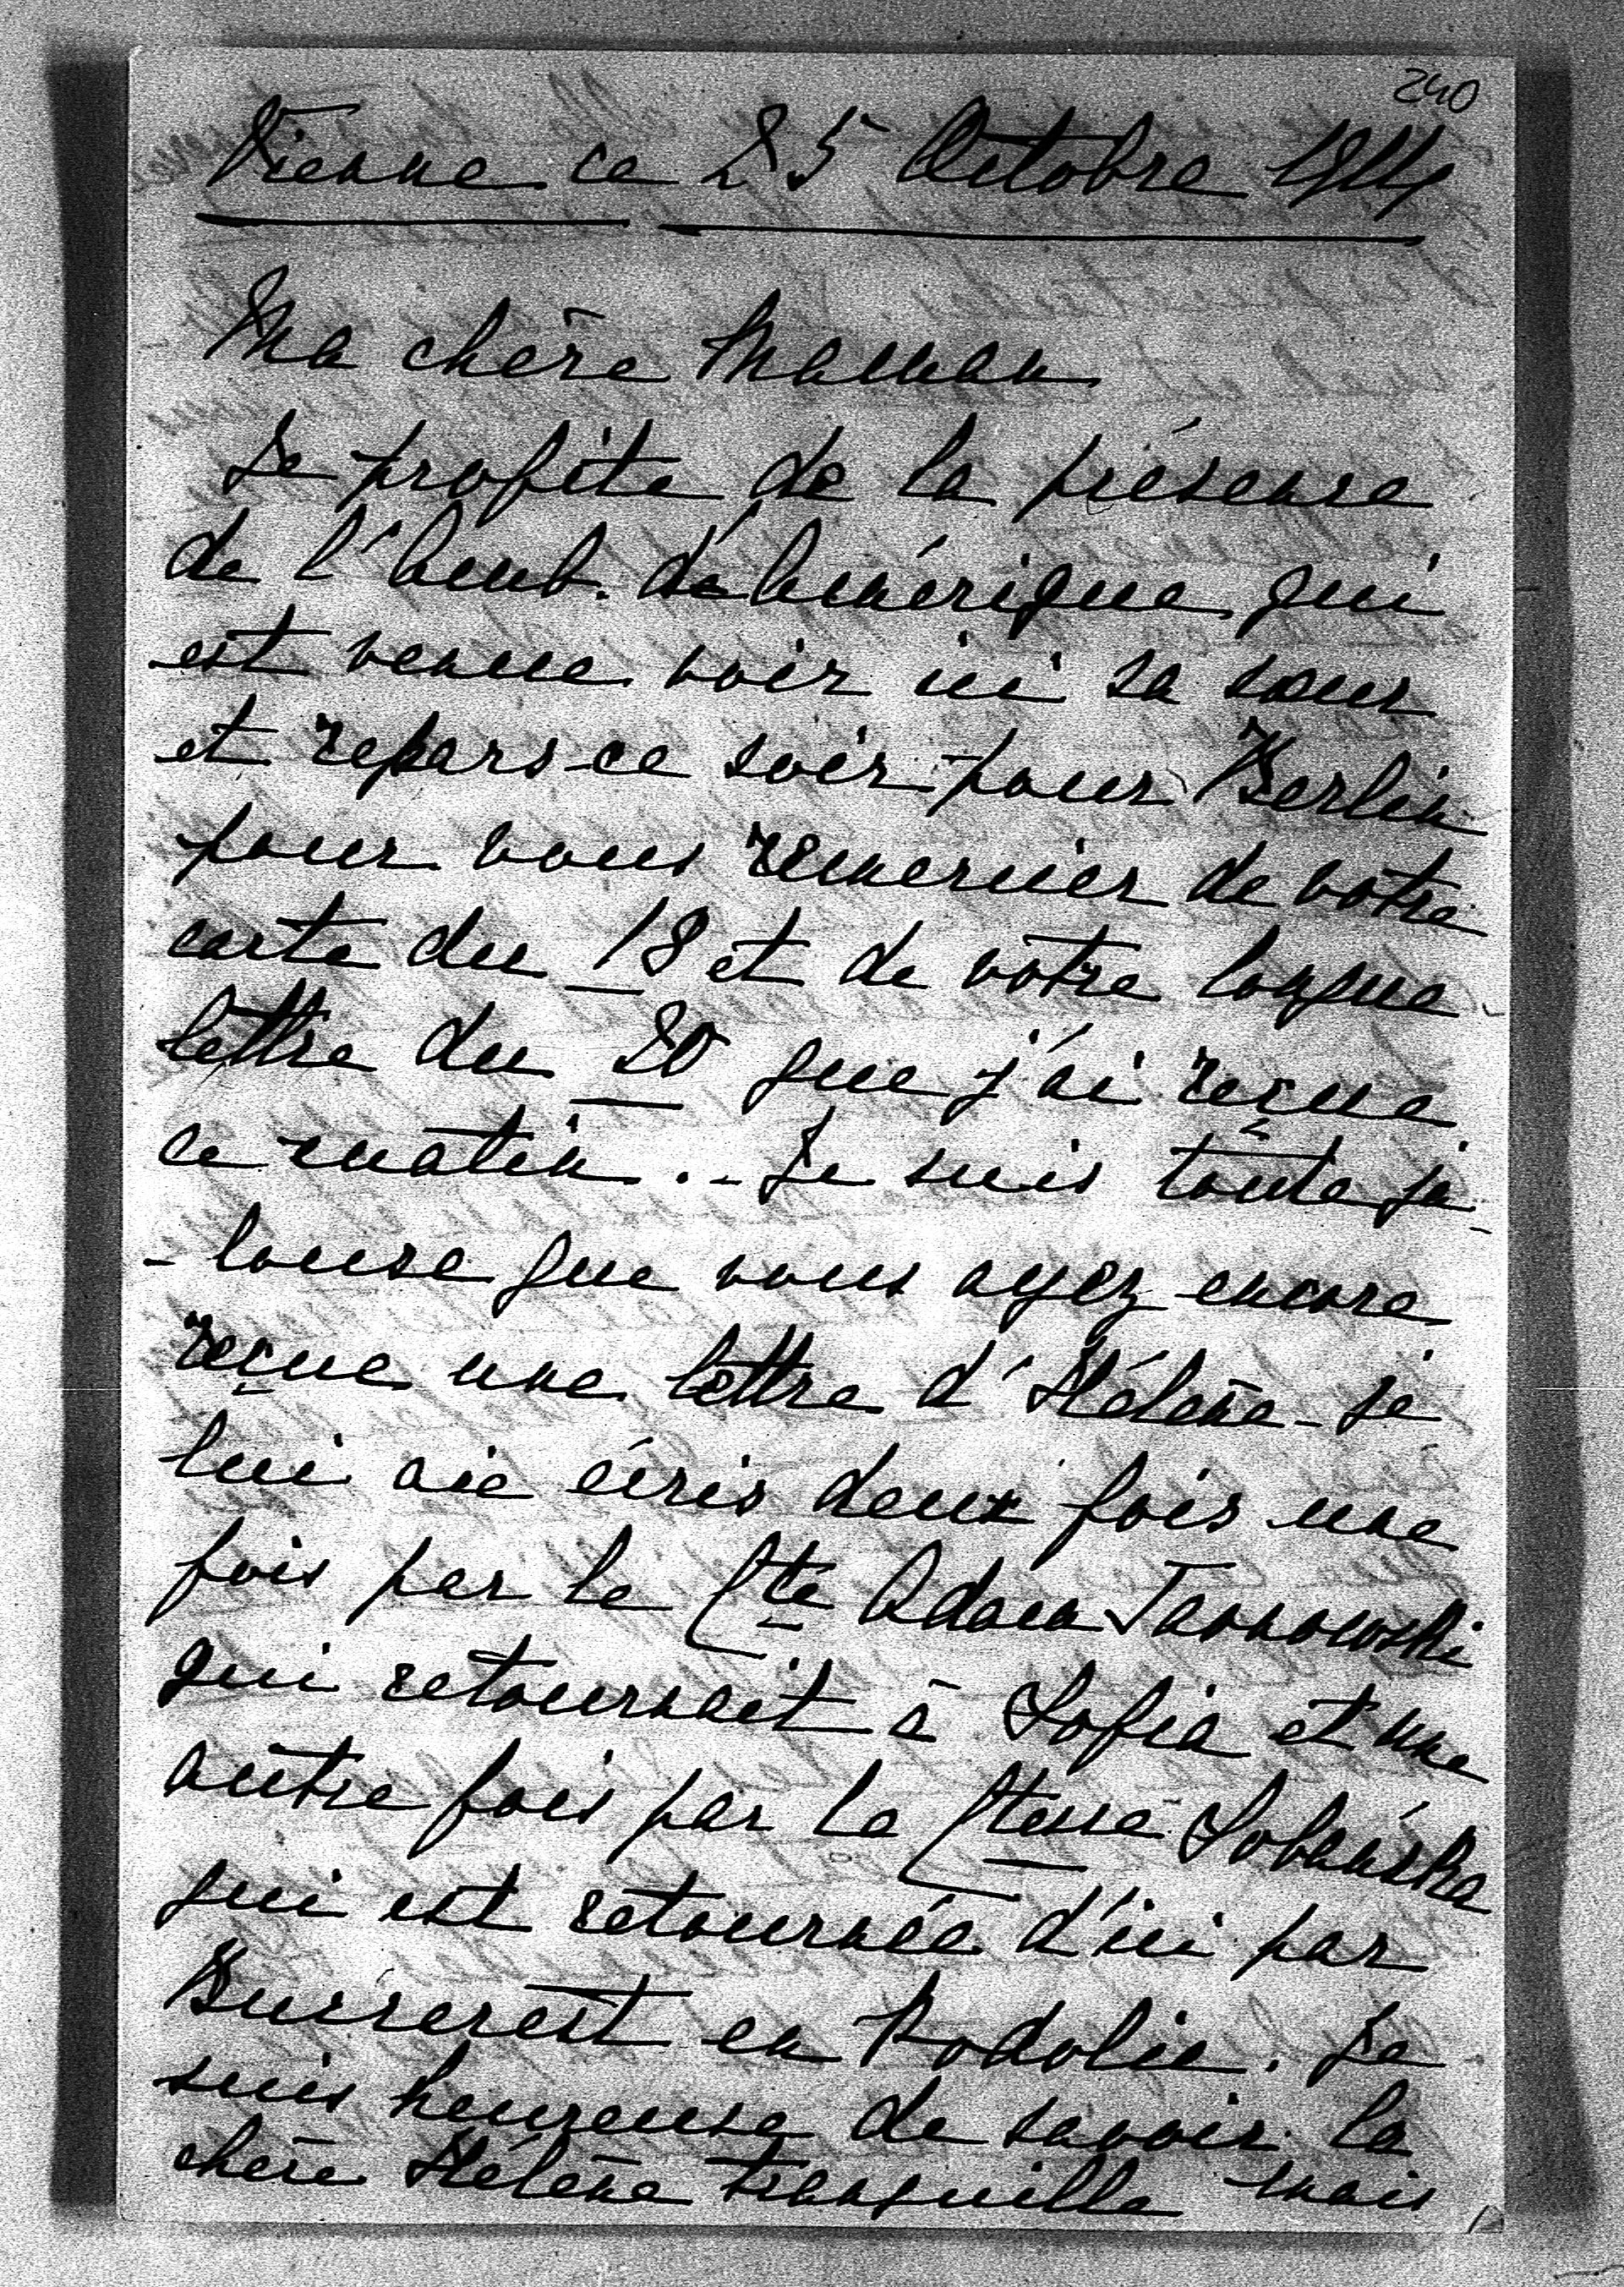 240
Vienne ce 25 Octobre 1914
Ma chère Maman
Je profite de la présence
de l'Amb. d'Amérique qui
est venue voir ici sa sœur
et repars ce soir pour Berlin
pour vous remercier de votre
carte du 18 et de votre longue
lettre du 20 que j'ai reçue
ce matin. - Je suis toute ja-
- louse que vous ayez encore
reçue une lettre d'Hélène - je
lui aie écris deux fois une
fois par le Cte Adam Tarnowski
qui retournait à Sofia et une
autre fois par la Ctesse Sobańska
qui est retournée d'ici par
Bucarest en Podolie. Je
suis heureuse de savoir la
chère Hélène tranquille mais